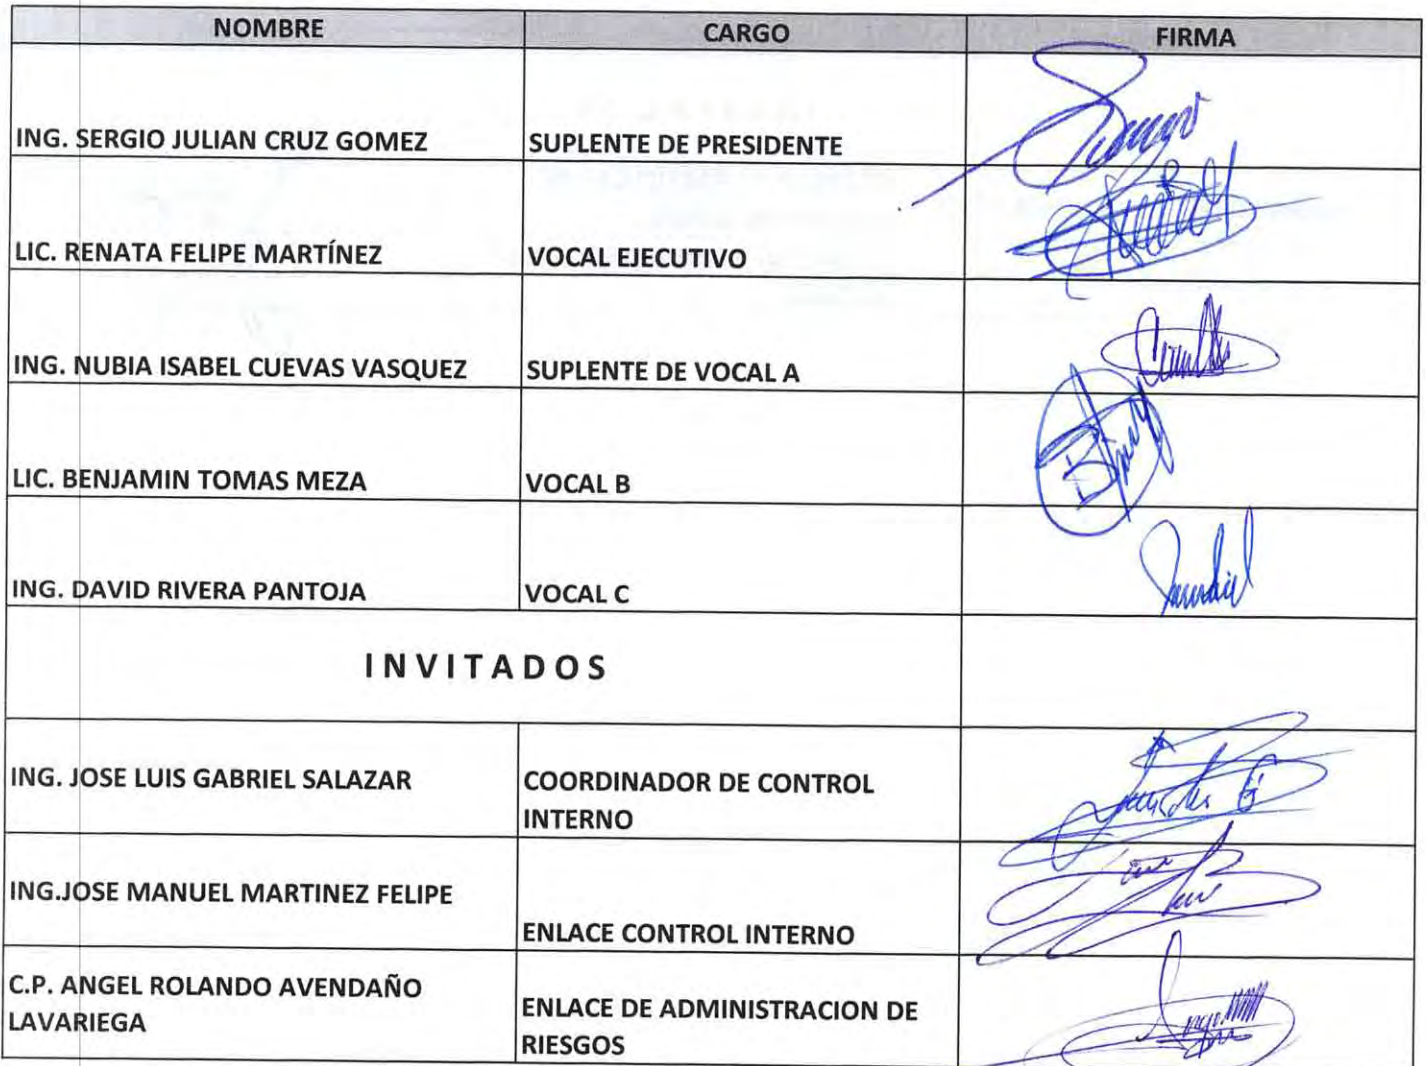 NOMBRE CARGO FIRMA
ING. SERGIO JULIAN CRUZ GOMEZ SUPLENTE DE PRESIDENTE
LIC. RENATA FELIPE MARTÍNEZ VOCAL EJECUTIVO
ING. NUBIA ISABEL CUEVAS VASQUEZ SUPLENTE DE VOCAL A
LIC. BENJAMIN TOMAS MEZA VOCAL B
ING. DAVID RIVERA PANTOJA VOCAL C
INVITADOS
ING. JOSE LUIS GABRIEL SALAZAR COORDINADOR DE CONTROL
INTERNO
ING.JOSE MANUEL MARTINEZ FELIPE
ENLACE CONTROL INTERNO
C.P. ANGEL ROLANDO AVENDAÑO
LAVARIEGA
ENLACE DE ADMINISTRACION DE
RIESGOS